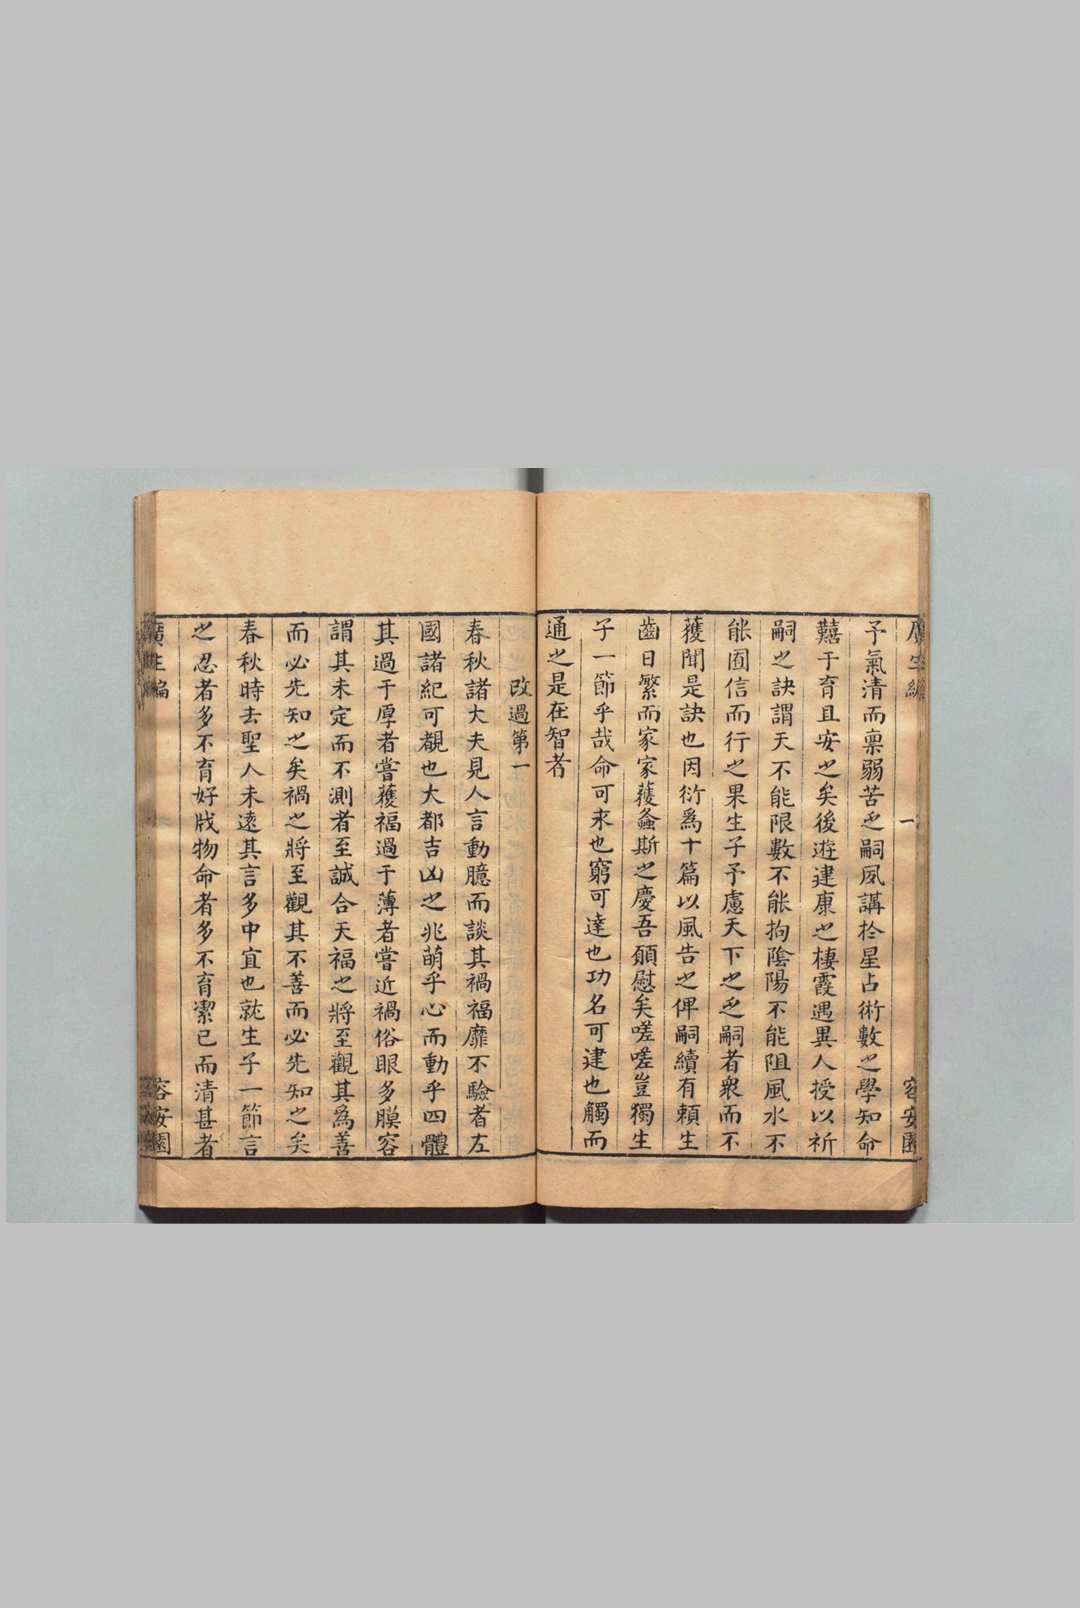 廣生編 一 容安園
予氣清而稟弱苦乏嗣夙講於星占術數之學知命
囏于育且安之矣後遊建康之棲霞遇異人授以祈
嗣之訣謂天不能限數不能拘隂陽不能阻風水不
能囿信而行之果生子予慮天下之乏嗣者衆而不
獲聞是訣也因衍爲十篇以風告之俾嗣續有賴生
齒日繁而家家獲螽斯之慶吾願慰矣嗟嗟豈獨生
子一節乎哉命可求也窮可達也功名可建也觸而
通之是在智者
改過第一
春秋諸大夫見人言動臆而談其禍福靡不驗者左
國諸紀可覩也大都吉凶之兆萌乎心而動乎四體
其過于厚者嘗獲福過于薄者嘗近禍俗眼多膜容
謂其未定而不測者至誠合天福之將至觀其爲善
而必先知之矣禍之將至觀其不善而必先知之矣
春秋時去聖人未遠其言多中宜也就生子一節言
之忍者多不育好戕物命者多不育潔已而清甚者
廣生編 容安園